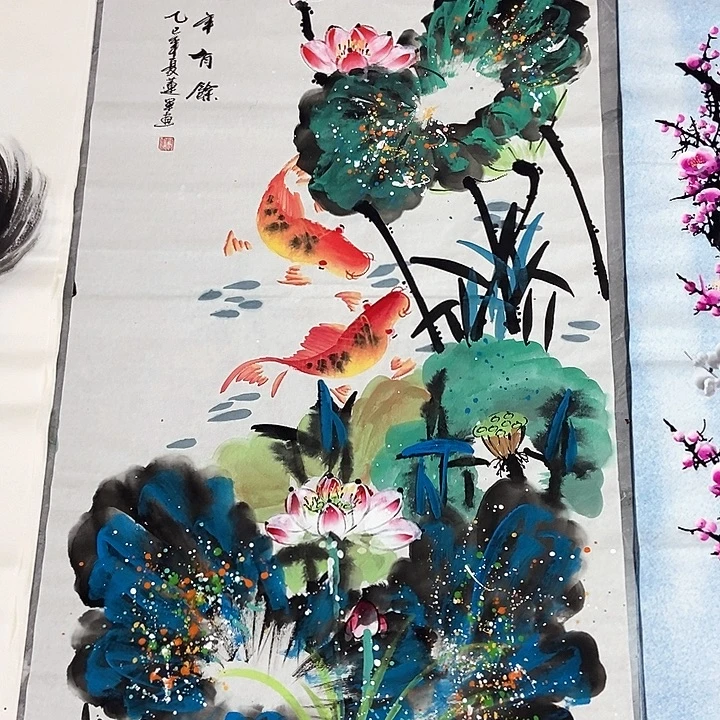 年有餘
乙巳年夏蓮軍畫